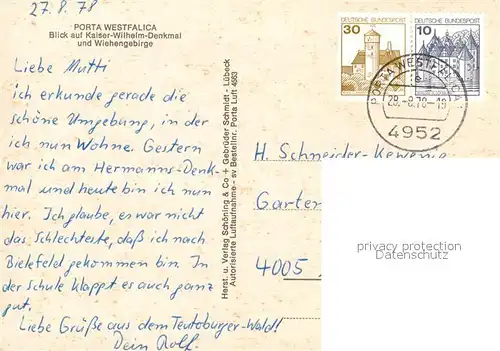 27.8.78
PORTA WESTFALICA
Blick auf Kaiser-Wilhelm-Denkmal
und Wiehengebirge
Liebe Mutti
ich erkunde gerade die
schöne Umgebung, in der
ich nun wohne. Gestern
war ich am Hermanns-Denk-
mal und heute bin ich nun
hier. Ich glaube, es war nicht
das Schlechteste, daß ich nach
Bielefeld gekommen bin. In
der Schule klappt es auch ganz
gut.
Liebe Grüße aus dem Teutoburger-Wald!
Dein Rolf.
Herst. u. Verlag Schöning & Co + Gebrüder Schmidt - Lübeck
Autorisierte Luftaufnahme - sv Bestellnr. Porta Luft 4663
30
DEUTSCHE BUNDESPOST
10
DEUTSCHE BUNDESPOST
PORTA WESTFALICA
28.-8.78-18
4952
H. Schneider-Kewenig
Garten
4005
privacy protection
Datenschutz